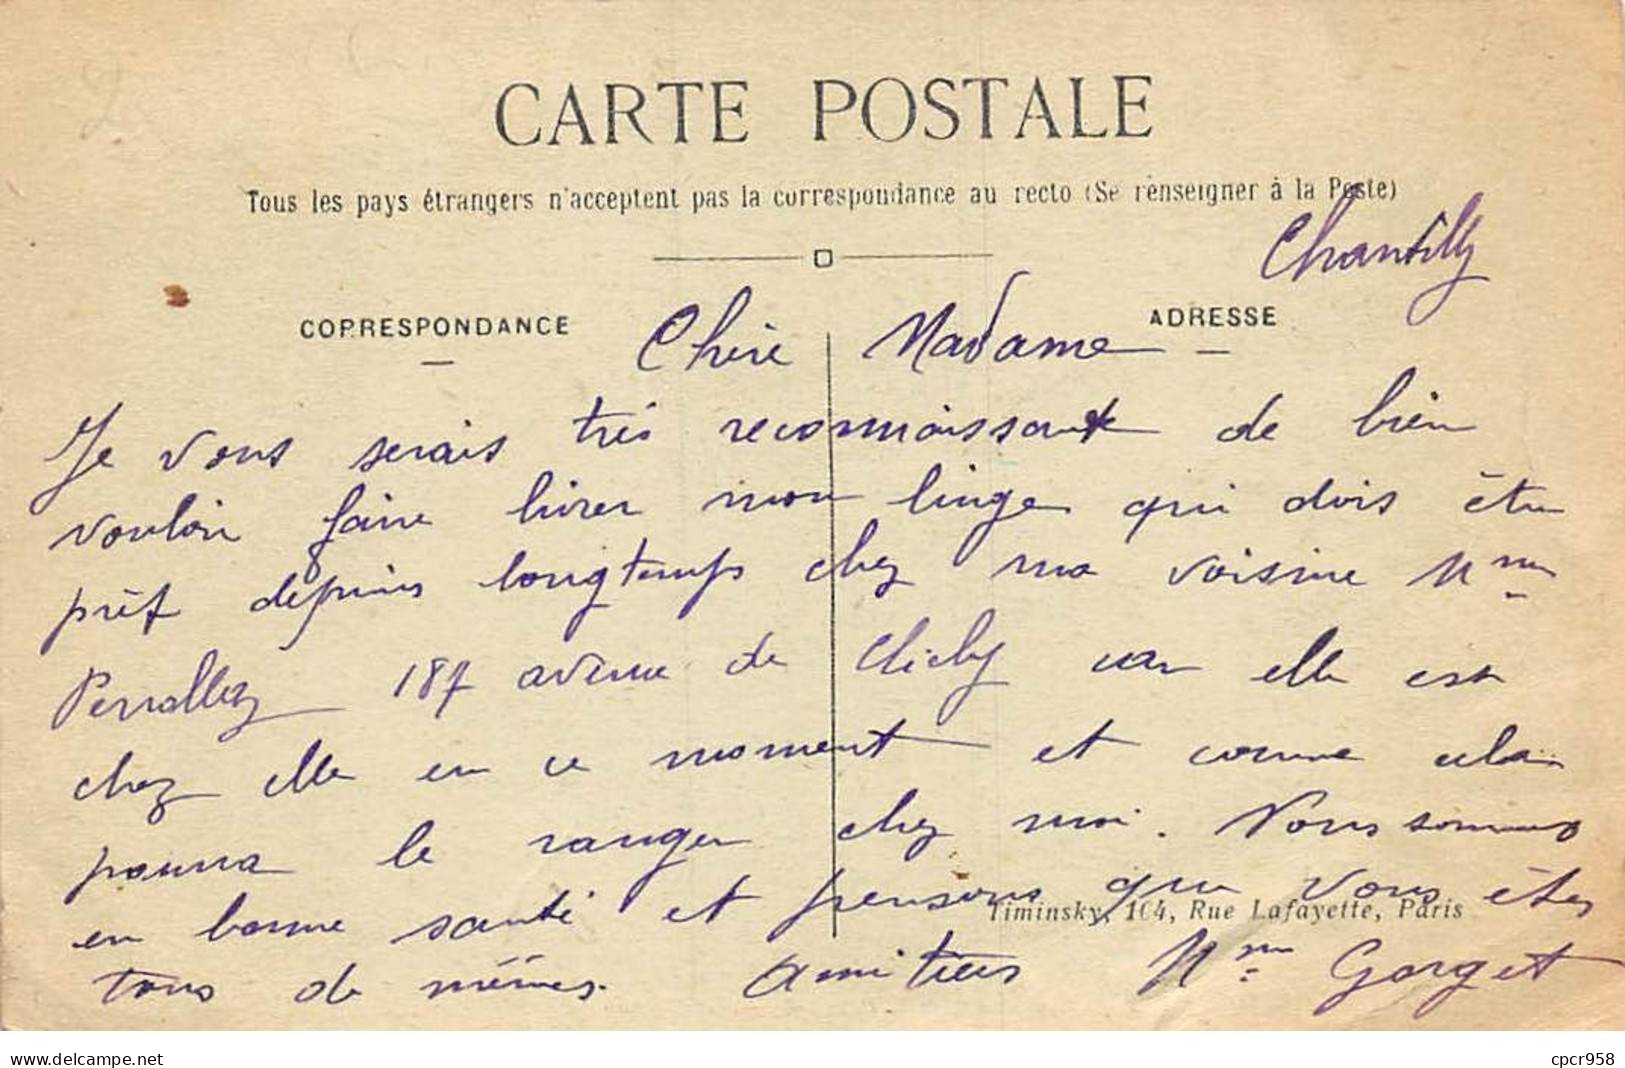 CARTE POSTALE
Tous les pays étrangers n'acceptent pas la correspondance au recto (Se renseigner à la Poste)
Chantilly
CORRESPONDANCE
ADRESSE
Chère Madame
Je vous serais très reconnaissante de bien
vouloir faire livrer mon linge qui dois être
prêt depuis longtemps chez ma voisine Mme
187 avenue de Clichy car elle est
chez elle en ce moment et comme cela
pourra le ranger chez moi. Nous sommes
en bonne santé et pensons que vous êtes
Timinsky, 104, Rue Lafayette, Paris
tous de mêmes. Amitiés Mme Gorget
www.delcampe.net
cpcr958